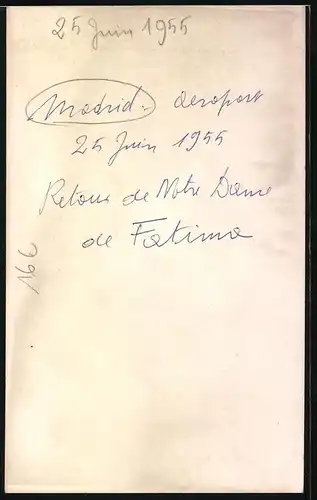 25 Juin 1955
Madrid - aeroport
25 Juin 1955
Retour de Notre Dame
de Fatima
166